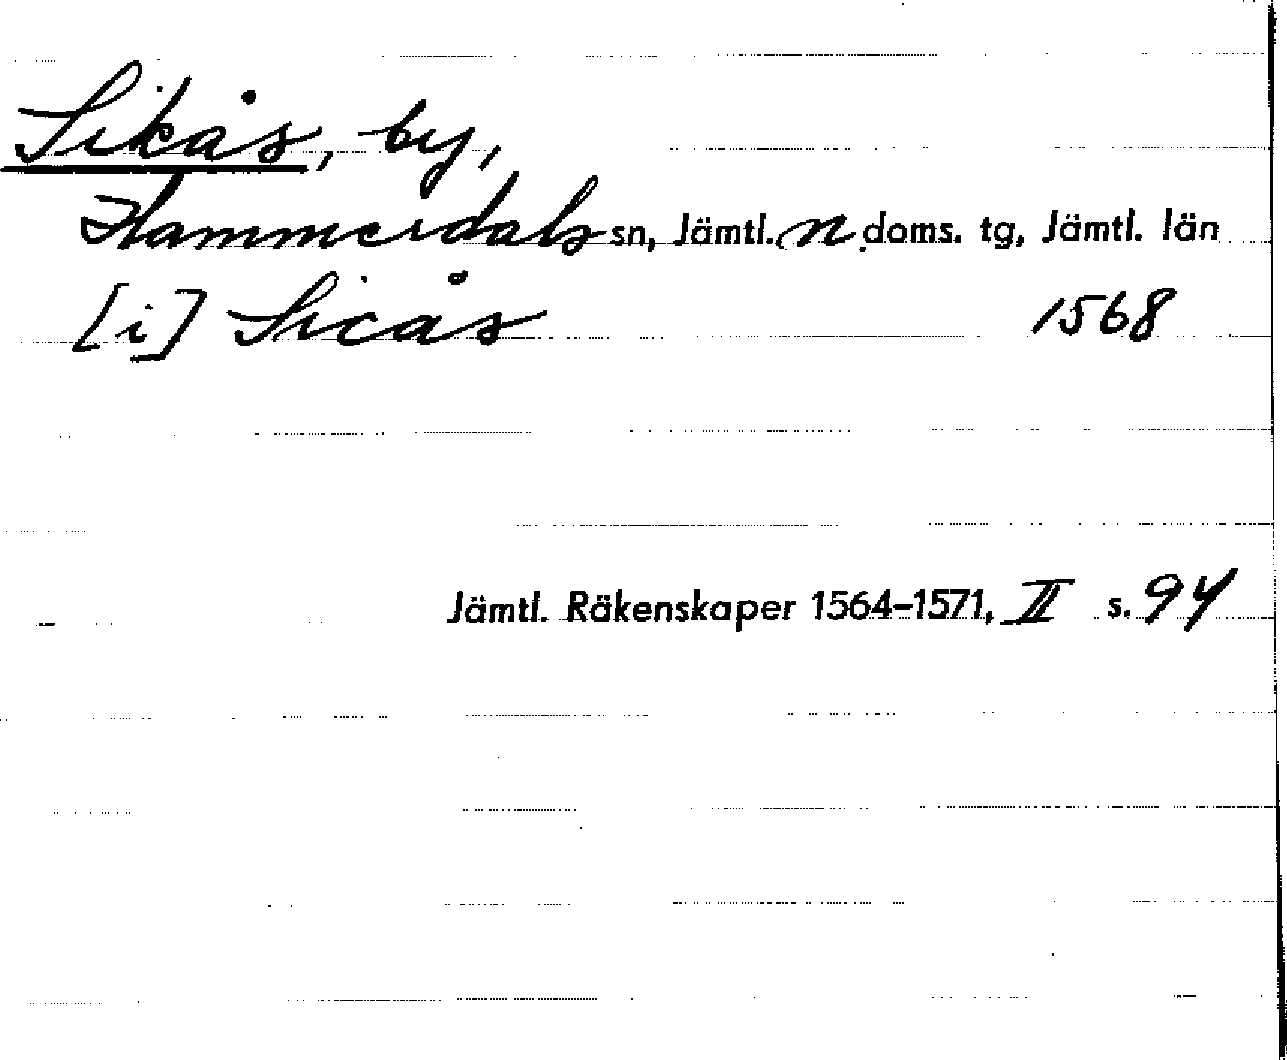 Sikås, by,
Hammerdals sn, Jämtl. n doms. tg, Jämtl. län
[i] Sicås 1568
Jämtl. Räkenskaper 1564-1571, II s. 94